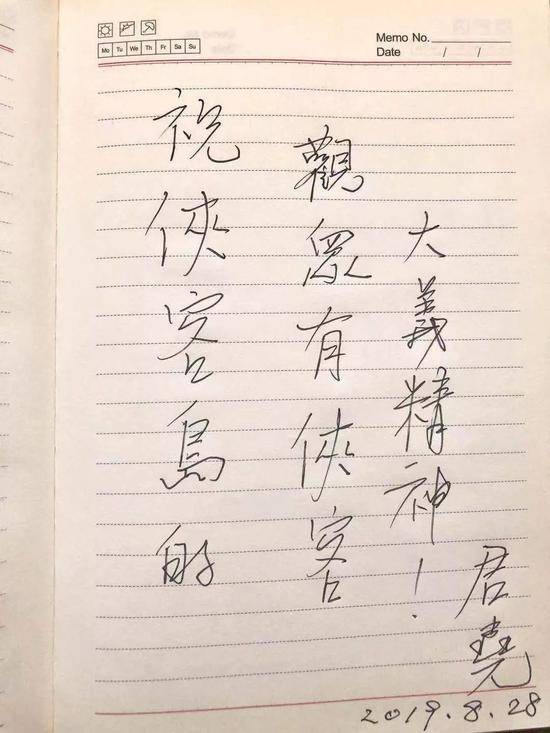 Mo Tu We Th Fr Sa Su
Memo No.
Date / /
祝俠客島的
觀眾有俠客
大義精神！
君堯
2019.8.28